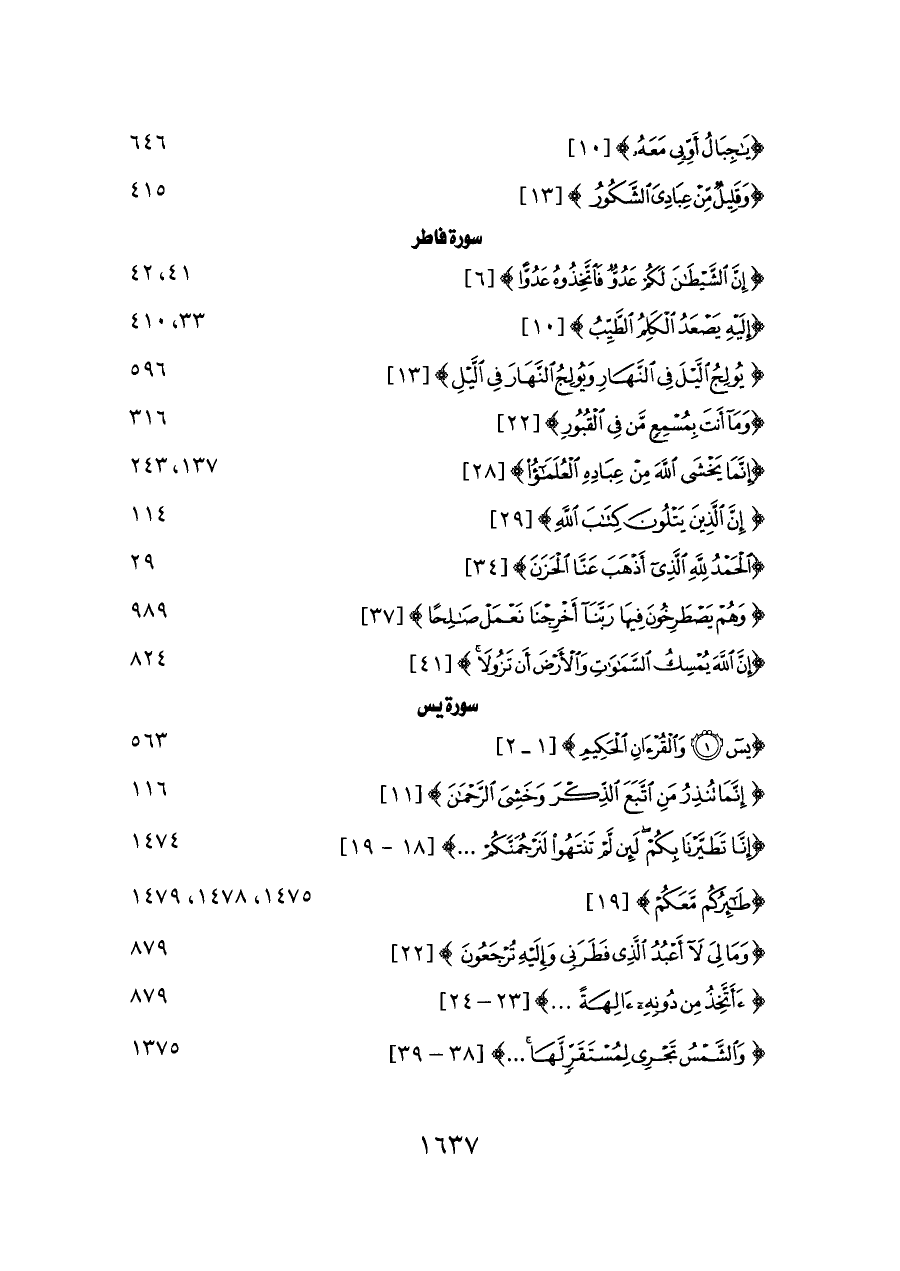 ﴿يَٰجِبَالُ أَوِّبِى مَعَهُۥ﴾ [١٠] ٦٤٦
﴿وَقَلِيلٌ مِّنْ عِبَادِىَ ٱلشَّكُورُ﴾ [١٣] ٤١٥
سورة فاطر
﴿إِنَّ ٱلشَّيْطَٰنَ لَكُمْ عَدُوٌّ فَٱتَّخِذُوهُ عَدُوًّا﴾ [٦] ٤١، ٤٢
﴿إِلَيْهِ يَصْعَدُ ٱلْكَلِمُ ٱلطَّيِّبُ﴾ [١٠] ٣٣، ٤١٠
﴿يُولِجُ ٱلَّيْلَ فِى ٱلنَّهَارِ وَيُولِجُ ٱلنَّهَارَ فِى ٱلَّيْلِ﴾ [١٣] ٥٩٦
﴿وَمَآ أَنتَ بِمُسْمِعٍ مَّن فِى ٱلْقُبُورِ﴾ [٢٢] ٣١٦
﴿إِنَّمَا يَخْشَى ٱللَّهَ مِنْ عِبَادِهِ ٱلْعُلَمَٰٓؤُا۟﴾ [٢٨] ١٣٧، ٢٤٣
﴿إِنَّ ٱلَّذِينَ يَتْلُونَ كِتَٰبَ ٱللَّهِ﴾ [٢٩] ١١٤
﴿ٱلْحَمْدُ لِلَّهِ ٱلَّذِىٓ أَذْهَبَ عَنَّا ٱلْحَزَنَ﴾ [٣٤] ٢٩
﴿وَهُمْ يَصْطَرِخُونَ فِيهَا رَبَّنَآ أَخْرِجْنَا نَعْمَلْ صَٰلِحًا﴾ [٣٧] ٩٨٩
﴿إِنَّ ٱللَّهَ يُمْسِكُ ٱلسَّمَٰوَٰتِ وَٱلْأَرْضَ أَن تَزُولَا ۚ﴾ [٤١] ٨٢٤
سورة يس
﴿يسٓ ١ وَٱلْقُرْءَانِ ٱلْحَكِيمِ﴾ [١ ـ ٢] ٥٦٣
﴿إِنَّمَا تُنذِرُ مَنِ ٱتَّبَعَ ٱلذِّكْرَ وَخَشِىَ ٱلرَّحْمَٰنَ﴾ [١١] ١١٦
﴿إِنَّا تَطَيَّرْنَا بِكُمْ ۖ لَئِن لَّمْ تَنتَهُوا۟ لَنَرْجُمَنَّكُمْ ...﴾ [١٨ - ١٩] ١٤٧٤
﴿طَٰٓئِرُكُم مَّعَكُمْ﴾ [١٩] ١٤٧٥، ١٤٧٨، ١٤٧٩
﴿وَمَا لِىَ لَآ أَعْبُدُ ٱلَّذِى فَطَرَنِى وَإِلَيْهِ تُرْجَعُونَ﴾ [٢٢] ٨٧٩
﴿ءَأَتَّخِذُ مِن دُونِهِۦٓ ءَالِهَةً ...﴾ [٢٣ – ٢٤] ٨٧٩
﴿وَٱلشَّمْسُ تَجْرِى لِمُسْتَقَرٍّ لَّهَا ۚ ...﴾ [٣٨ – ٣٩] ١٣٧٥
١٦٣٧